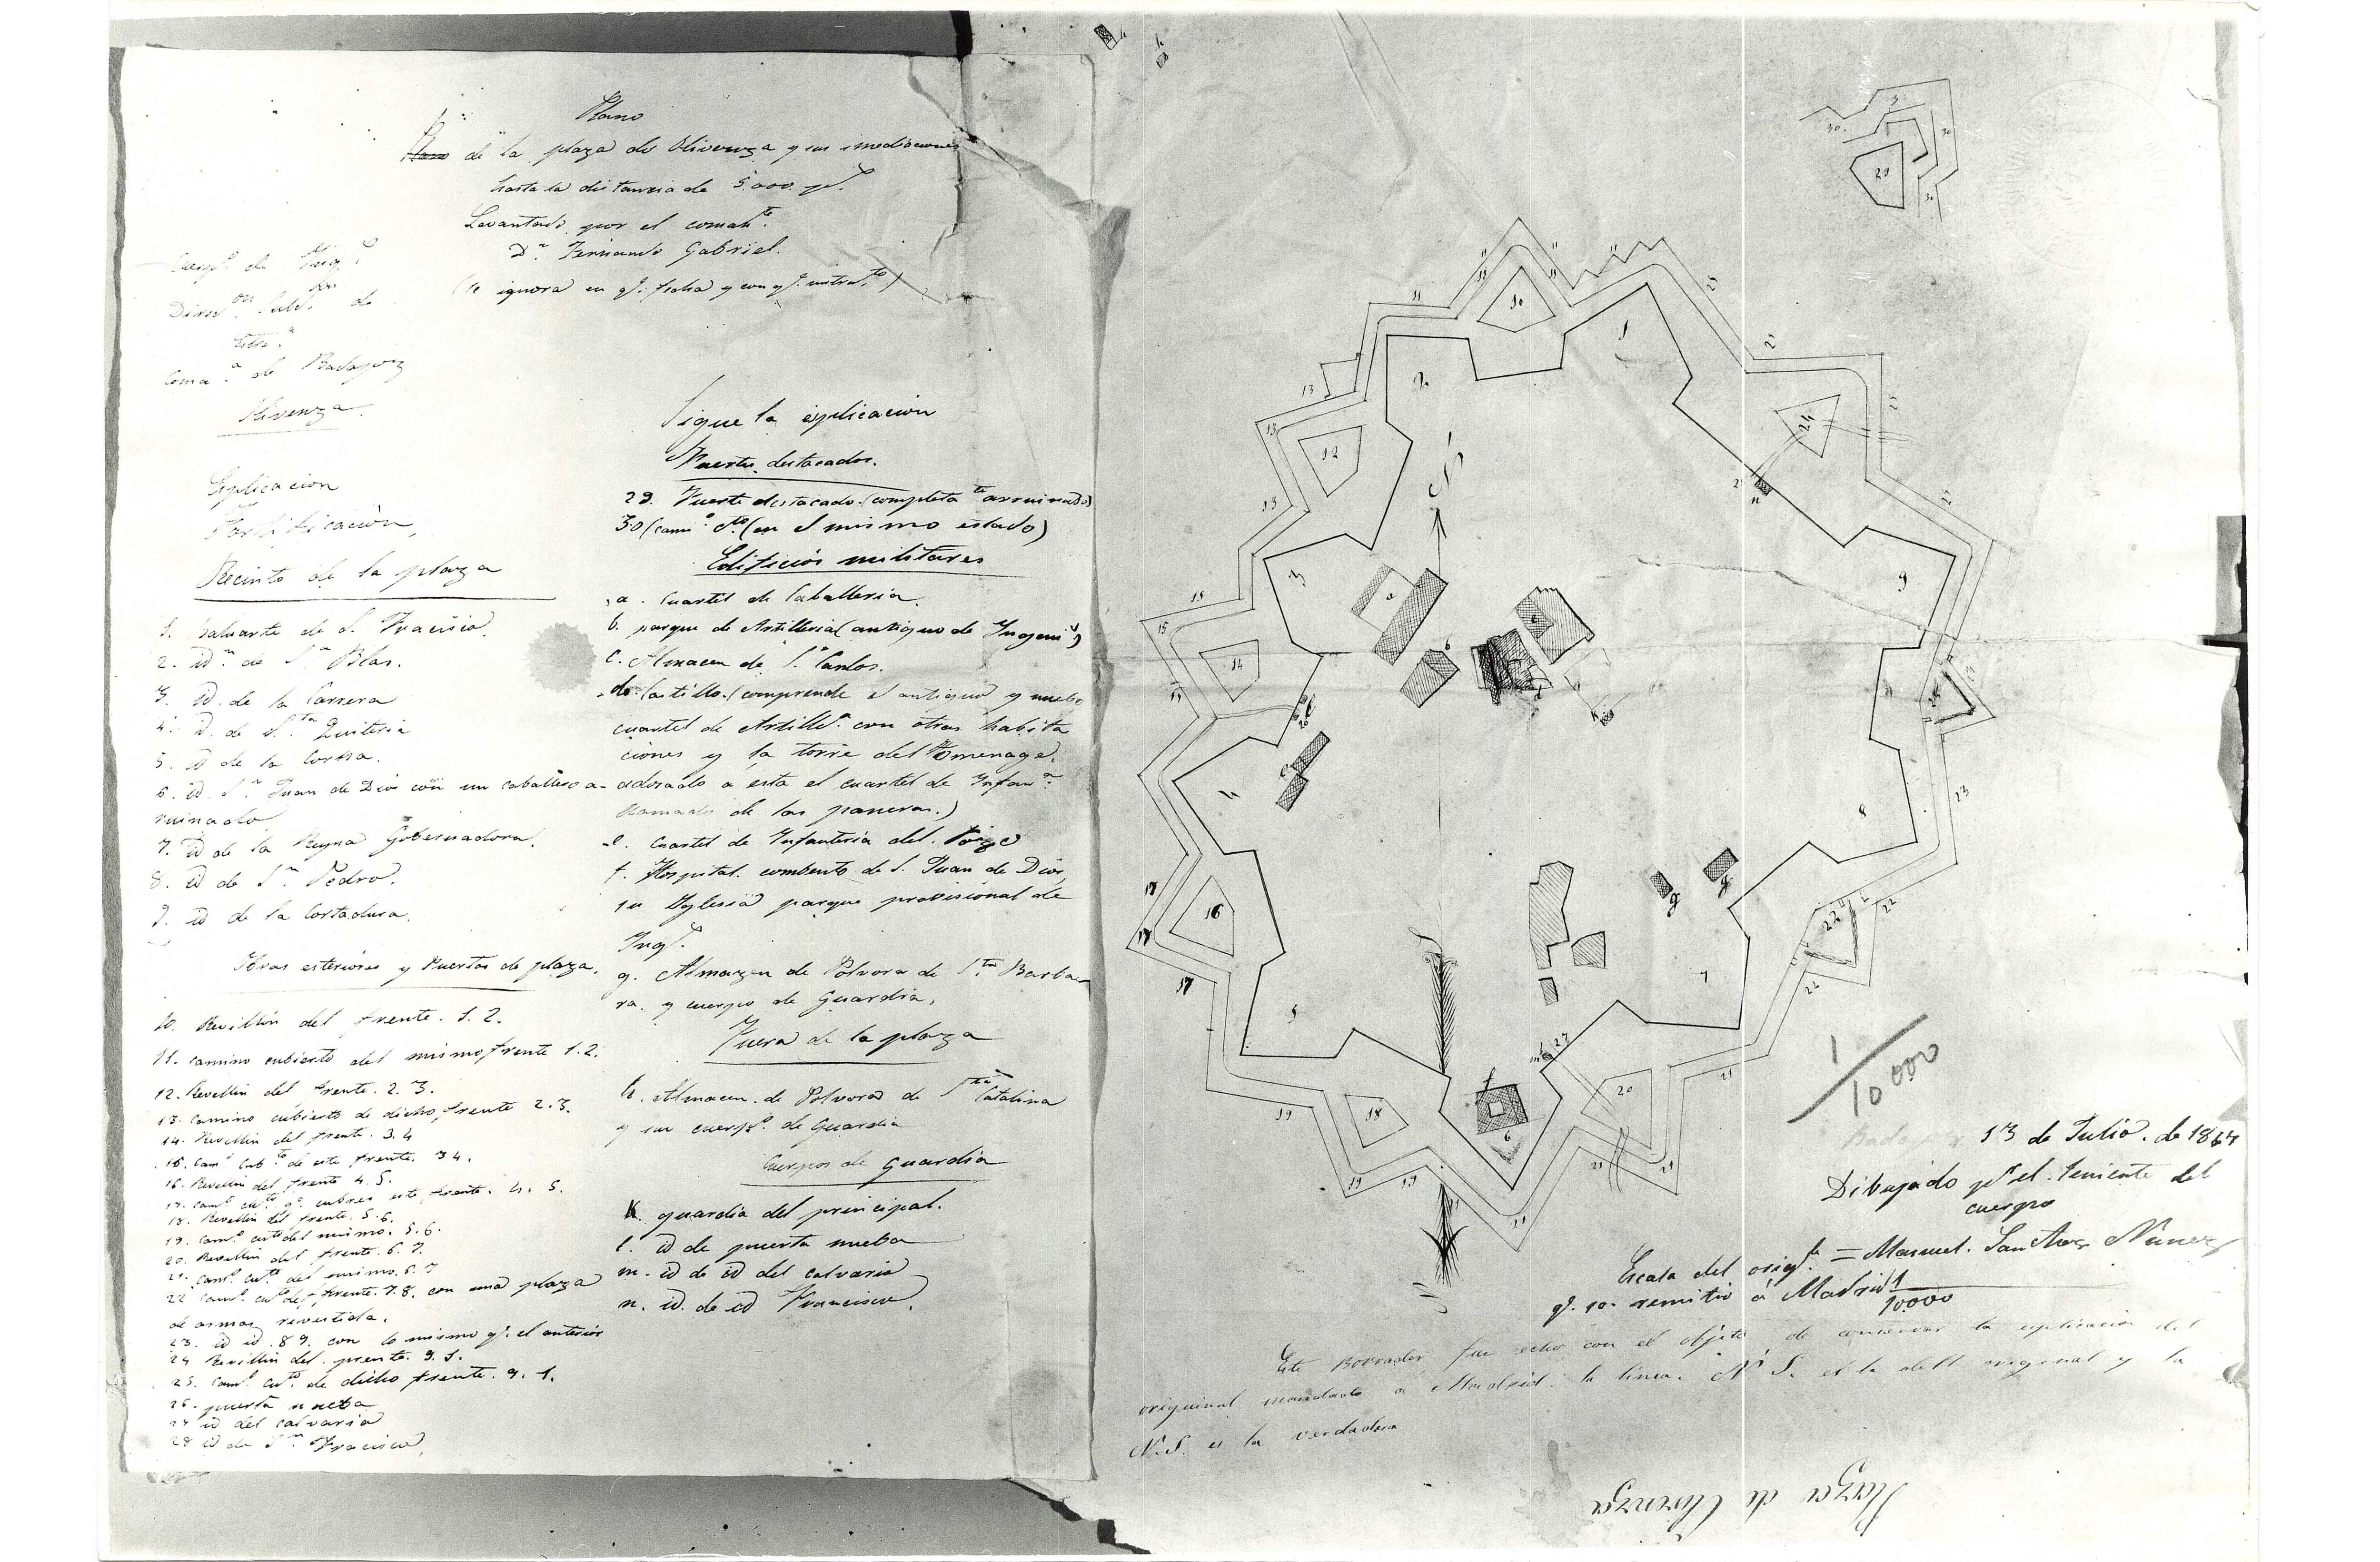 Plano
Plano de la plaza de Olivenza y sus inmediaciones
hasta la distancia de 5.000. p.s
Levantado por el comand.te
D.n Fernando Gabriel.
(Se ignora en q.e fecha y con q.e instrum.to)
Cuerp.o de Ing.s
Direc.on Sub.on de
Estre.a
Coma.a de Badajoz
Olivenza.
Esplicacion
Fortificación,
Recinto de la plaza
1. baluarte de S. Fracisco.
2. id.m de S.n Blas.
3. id. de la Carrera
4. id. de S.ta Quiteria
5. id de la Corna.
6. id. S.n Juan de Dios con un caballero a-
ruinado
7. id de la Reyna Gobernadora.
8. id de S.n Pedro.
9. id de la Cortadura.
Obras esteriores y Puertas de plaza.
10. Revellin del frente. 1. 2.
11. camino cubierto del mismo frente 1. 2.
12. Revellin del frente. 2. 3.
13. camino cubierto de dicho frente 2. 3.
14. Revellin del frente. 3. 4
15. cam.o cub.to de este frente. 3 4.
16. Revellin del frente 4. 5.
17. cam.o cu.to q.e cubre este frente. 4. 5.
18. Revellin del frente. 5. 6.
19. cam.o cu.to del mismo. 5. 6.
20. Revellin del frente. 6. 7.
21. cam.o cu.to del mismo. 6. 7
22 cam.o cu.to del frente. 7. 8. con una plaza
de armas revestida.
23. id id. 8 9. con lo mismo q.e el anterior
24 Revellin del frente. 9. 1.
25. cam.o cu.to de dicho frente. 9. 1.
26. puerta nueba
27 id del calvario
28 id de S.n Fracisco,
Sigue la esplicacion
Fuertes destacados.
29. Fuerte destacado (completa.te arruinado)
30 (cam.o c.to (en el mismo estado)
Edificios militares
a. Cuartel de Caballeria.
b. parque de Artilleria (antiguo de Ingeni.s)
c. Almacen de S.n Carlos.
d. Castillo. (comprende el antiguo y nuebo
cuartel de Artille.a con otras habita
ciones y la torre del Homenage.
adosado a esta el cuartel de Infan.a
llamado de las paneras.)
e. Cuartel de Infanteria del. Pozo
f. Hospital. combento de S. Juan de Dios
su Yglesia parque provisional de
Ing.s
g. Almazen de Polvora de S.ta Barba
ra y cuerpo de Guardia,
Fuera de la plaza
h. Almacen de Polvora de S.ta Catalina
y su cuerp.o de Guardia
Cuerpos de guardia
k. guardia del principal.
l. id de puerta nueba
m. id de id del calvario
n. id. de id Francisco,
h
h
30.
3
30
29
30
11
11
11
11
11
11
10
1
2
25
25
25
25
24
28
n
13
13
13
12
3
9
a
b
e
d
k
15
15
15
14
26
l
c
4
8
23
23
17
17
17
16
g
g
22
22
22
5
7
27
m
f
6
20
18
19
19
19
21
21
21
21
1/10000
13 de Julio. de 1867
Dibujado p.r el. teniente del
cuerpo
Escala del orig.l = Manuel. Sanchez Nunez
q.e se. remitio á Madrid 1/10.000
Este Borrador fue echo con el objeto de conservar la esplicacion del
original mandado a Madrid: la linea. N S. es la del original y la
N. S. es la verdadera
Plaza de Olivenza